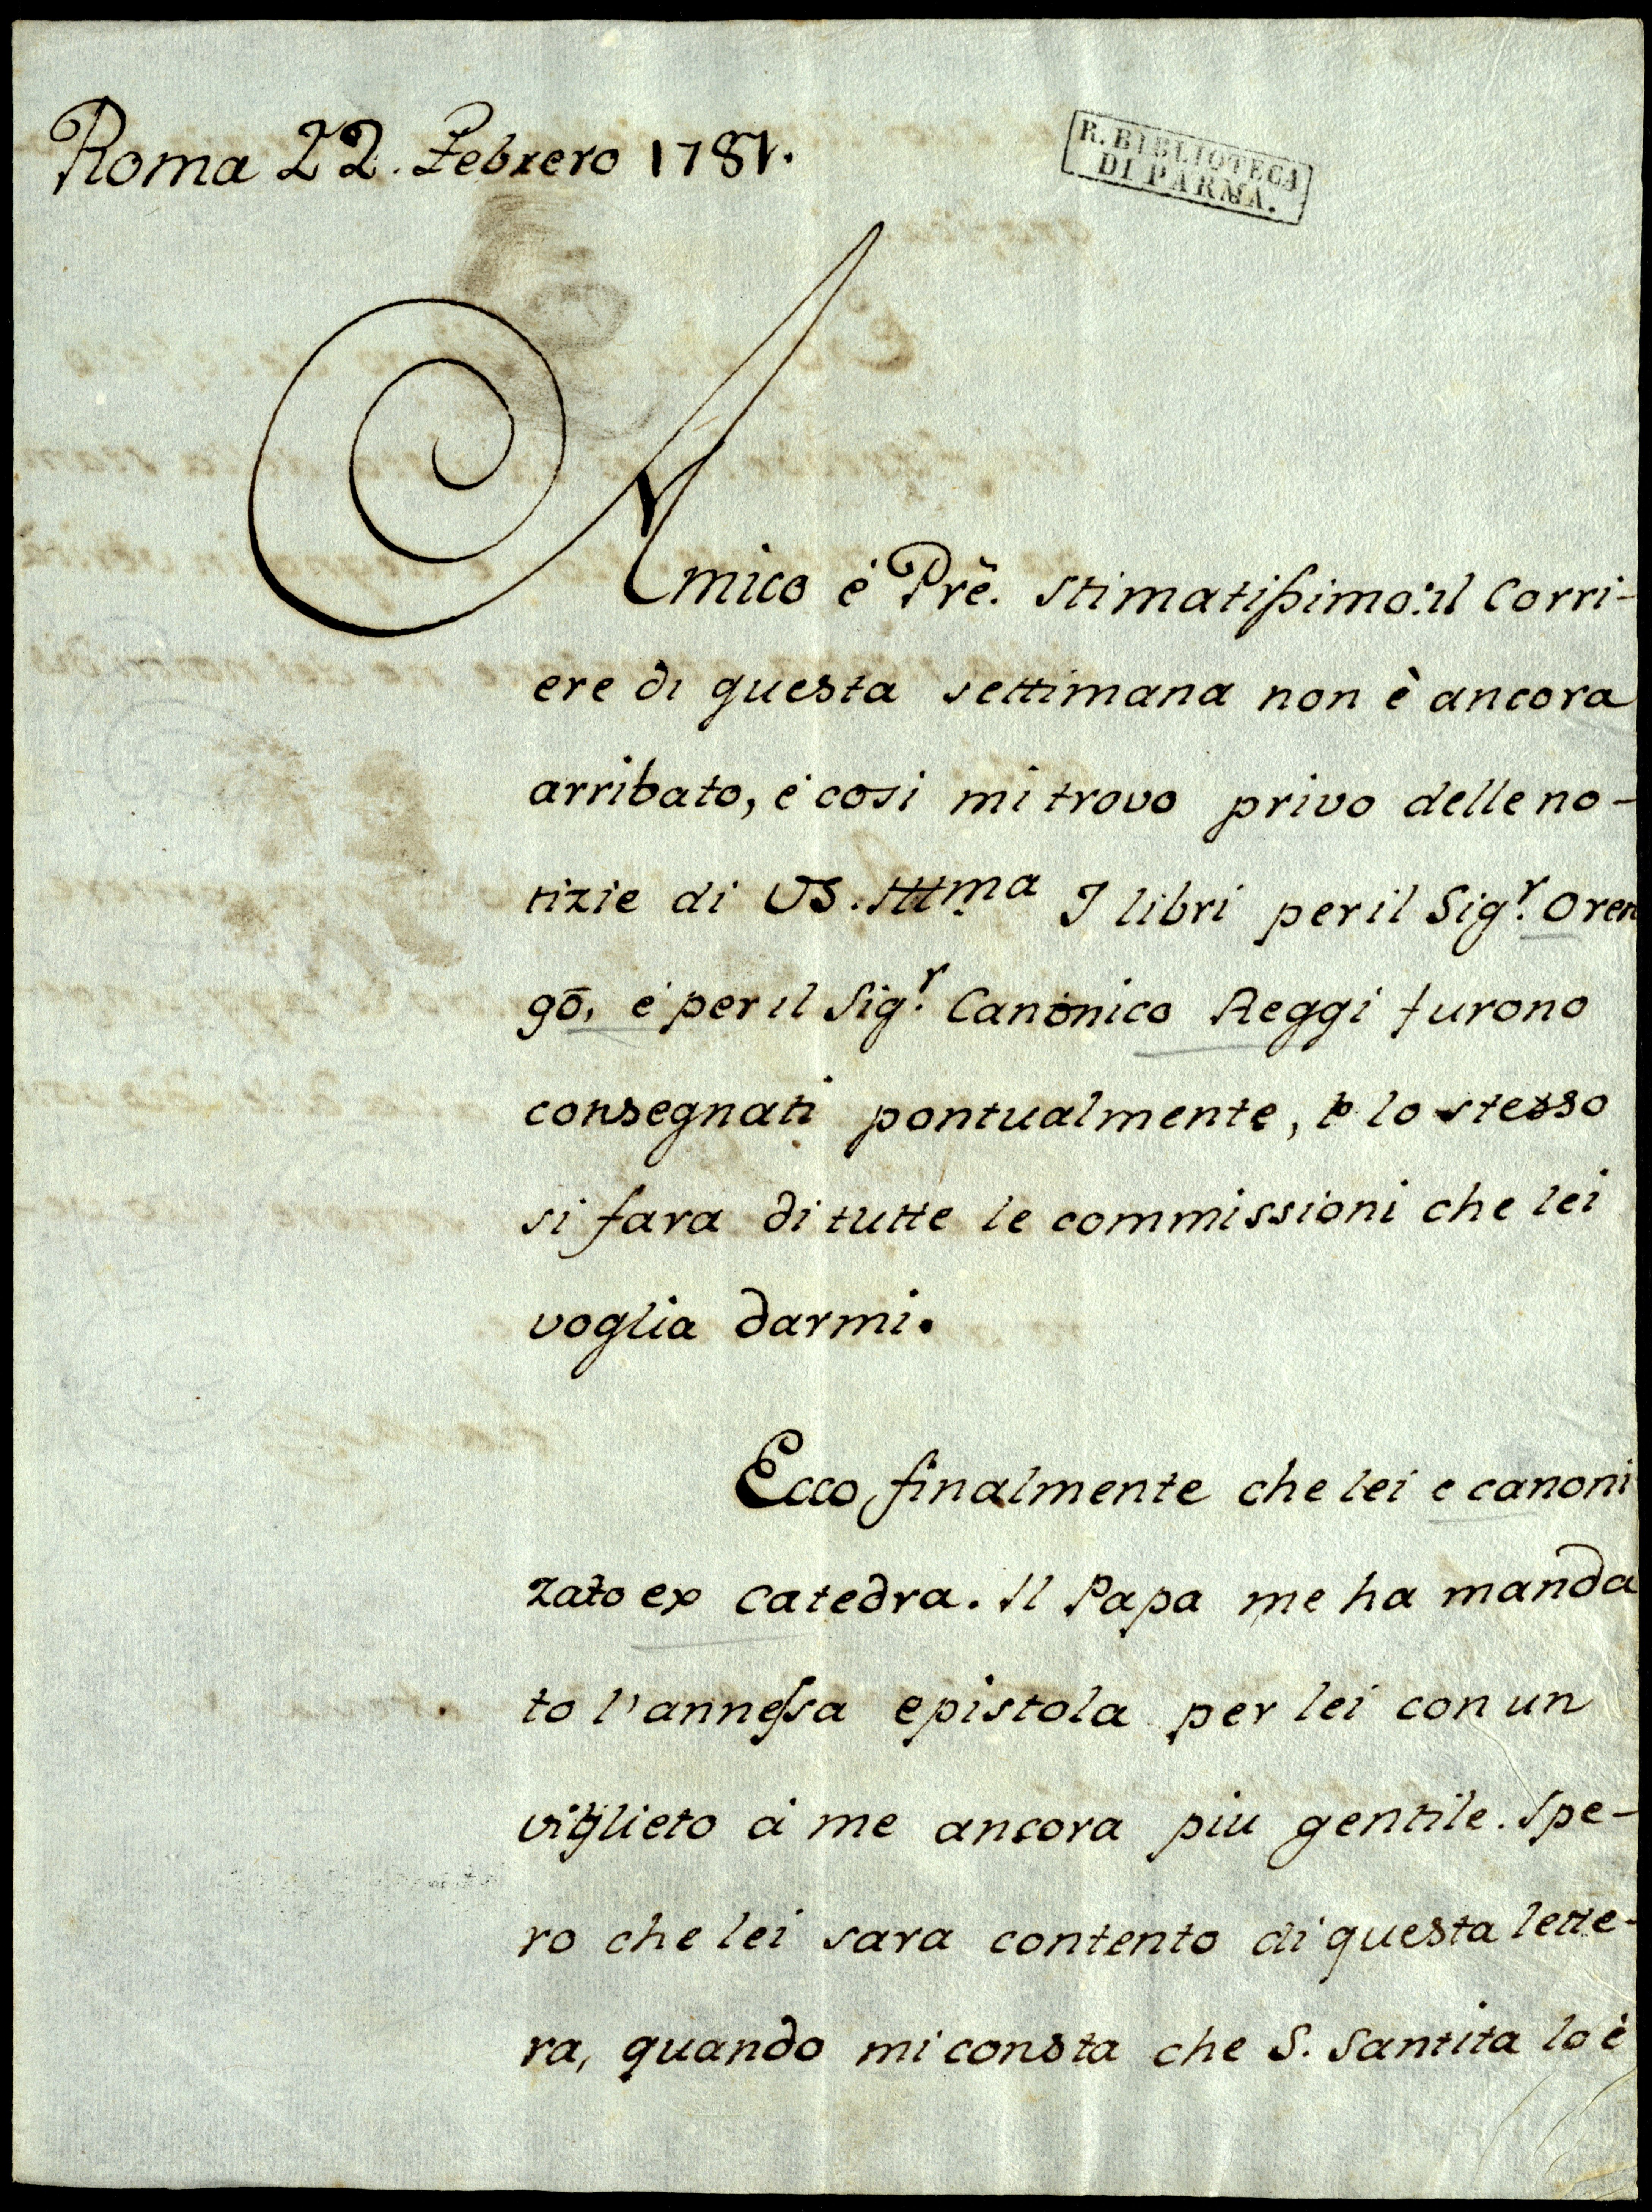 Roma 22. Febrero 1781.
R. BIBLIOTECA
DI PARMA.
Amico é Prẽ. stimatissimo: il Corri-
ere di questa settimana non è ancora
arribato, é cosi mi trovo privo delle no-
tizie di VS. Illma I libri per il Sigr. Oren
gō, é per il Sigr. Canonico Reggi furono
consegnati pontualmente, e lo stesso
si fara di tutte le commissioni che lei
voglia darmi.
Ecco finalmente che lei e canoni
zato ex Catedra. Il Papa me ha manda
to l'annessa epistola per lei con un
viglieto á me ancora piu gentile. Spe-
ro che lei sara contento di questa lette-
ra, quando mi consta che S. Santita lo é